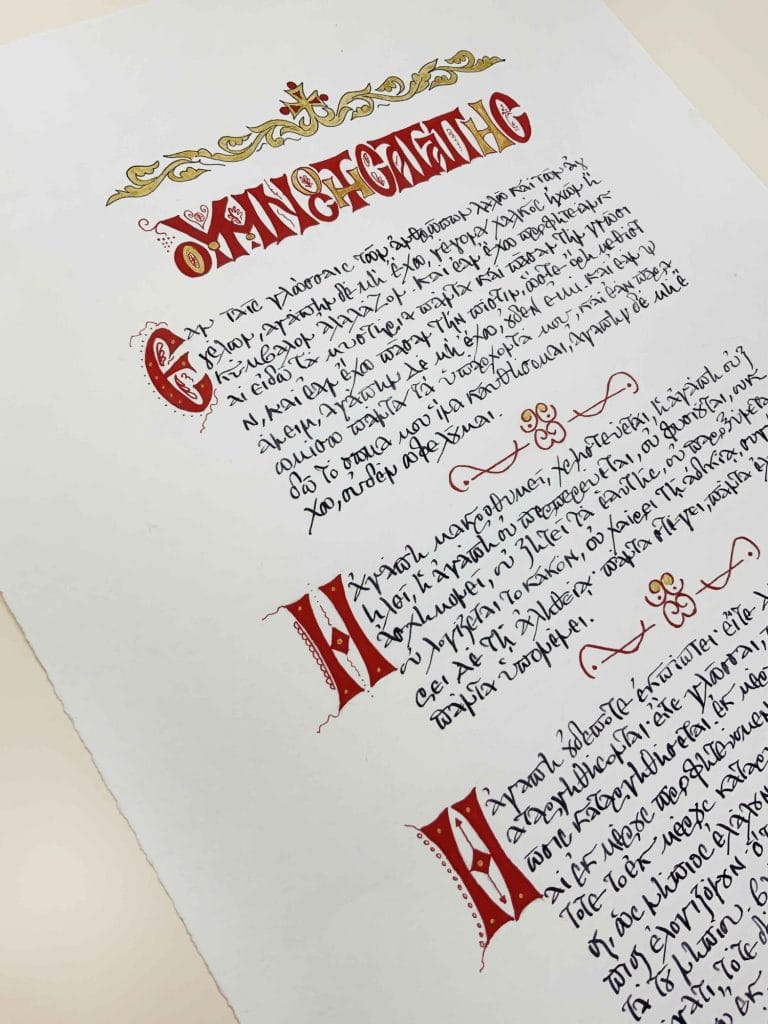 Ο ΥΜΝΟΣ ΤΗΣ ΑΓΑΠΗΣ
Ἐὰν ταῖς γλώσσαις τῶν ἀνθρώπων λαλῶ καὶ τῶν ἀγ
γέλων, ἀγάπην δὲ μὴ ἔχω, γέγονα χαλκὸς ἠχῶν ἢ
κύμβαλον ἀλαλάζον. καὶ ἐὰν ἔχω προφητείαν κ
αὶ εἰδῶ τὰ μυστήρια πάντα καὶ πᾶσαν τὴν γνῶσι
ν, καὶ ἐὰν ἔχω πᾶσαν τὴν πίστιν, ὥστε ὄρη μεθιστ
άνειν, ἀγάπην δὲ μὴ ἔχω, οὐδέν εἰμι. καὶ ἐὰν ψ
ωμίσω πάντα τὰ ὑπάρχοντά μου, καὶ ἐὰν παρα
δῶ τὸ σῶμά μου ἵνα καυθήσωμαι, ἀγάπην δὲ μὴ ἔ
χω, οὐδὲν ὠφελοῦμαι.
Ἡ ἀγάπη μακροθυμεῖ, χρηστεύεται, ἡ ἀγάπη οὐ ζ
ηλοῖ, ἡ ἀγάπη οὐ περπερεύεται, οὐ φυσιοῦται, οὐκ
ἀσχημονεῖ, οὐ ζητεῖ τὰ ἑαυτῆς, οὐ παροξύνεται
οὐ λογίζεται τὸ κακόν, οὐ χαίρει τῇ ἀδικίᾳ, συγ
ρει δὲ τῇ ἀληθείᾳ· πάντα στέγει, πάντα
πάντα ὑπομένει.
Ἡ ἀγάπη οὐδέποτε ἐκπίπτει· εἴτε
αταργηθήσονται· εἴτε γλῶσσαι,
σις καταργηθήσεται. ἐκ μέρους
αὶ ἐκ μέρους προφητεύομεν
τότε τὸ ἐκ μέρους κατα
η, ὡς νήπιος ἐλάλουν
πιος ἐλογιζόμην ὅτ
τὰ τοῦ νηπίου. βλ
γματι, τότε δὲ
ἐκ